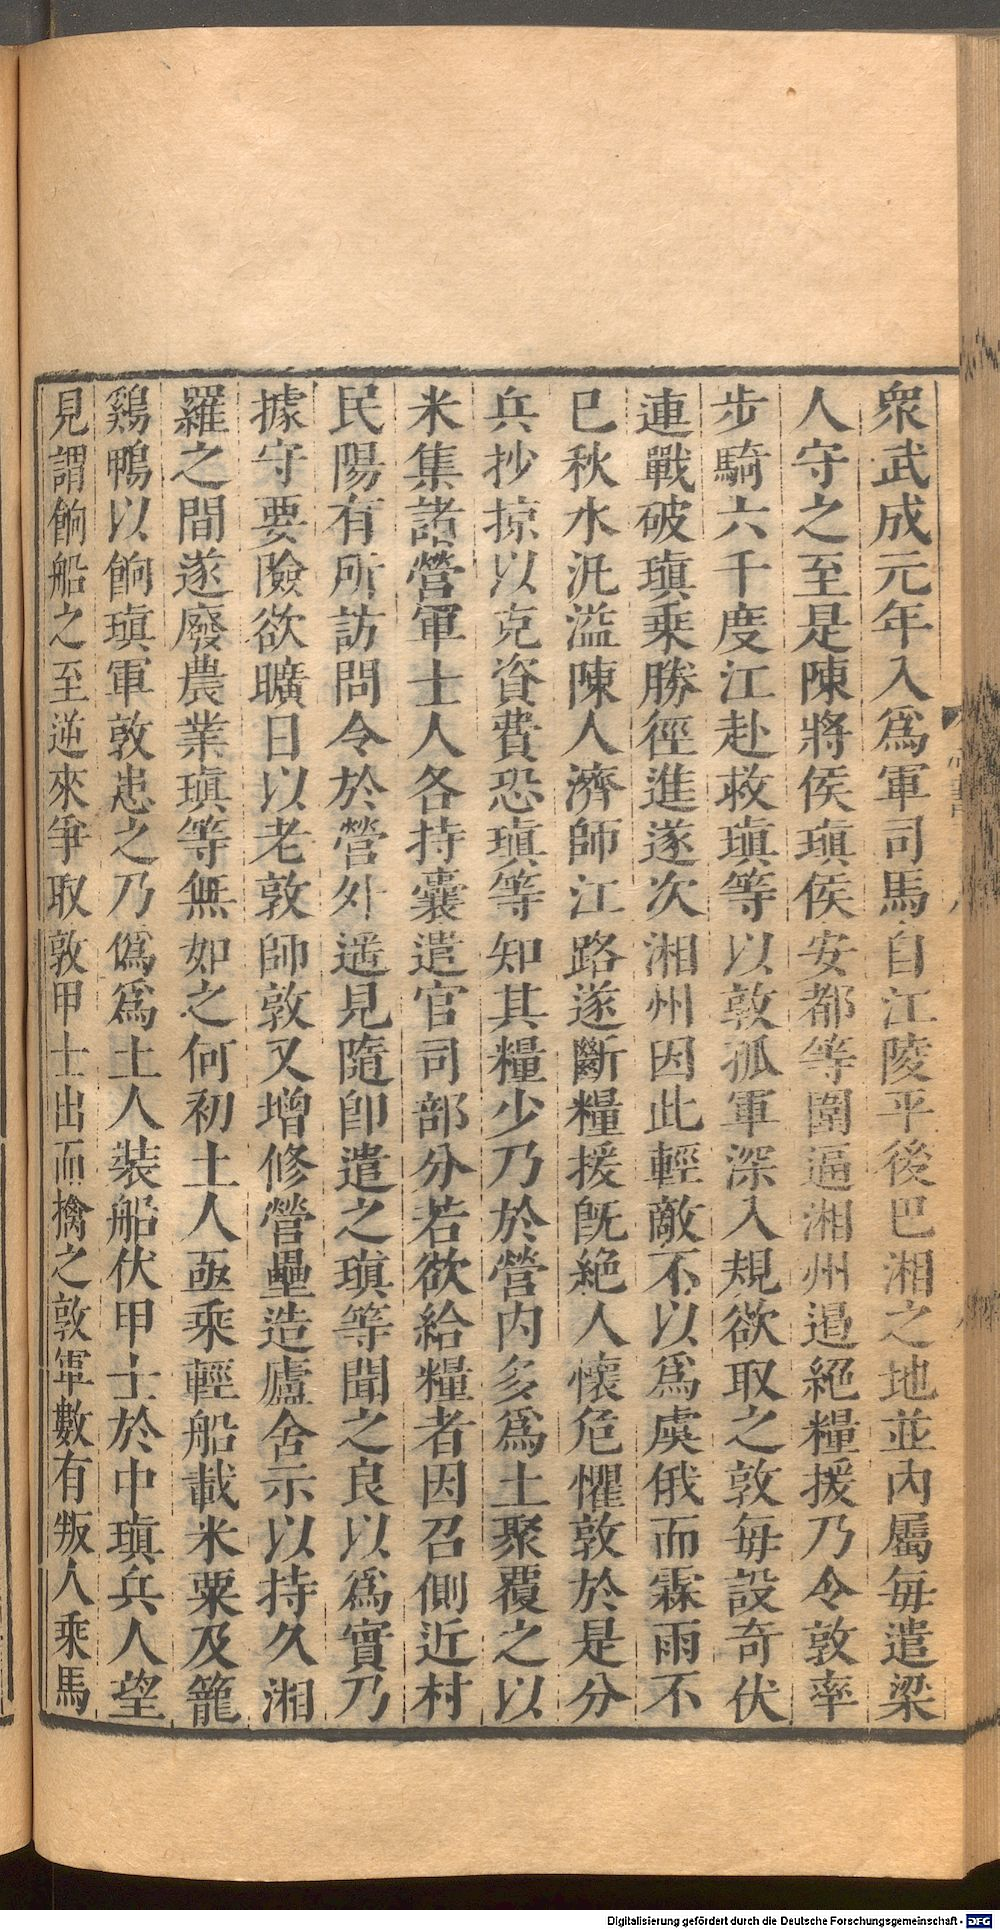 衆武成元年入爲軍司馬自江陵平後巴湘之地並內屬每遣梁
人守之至是陳將侯瑱侯安都等圍逼湘州遏絕糧援乃令敦率
步騎六千度江赴救瑱等以敦孤軍深入規欲取之敦每設奇伏
連戰破瑱乘勝徑進遂次湘州因此輕敵不以爲虞俄而霖雨不
巳秋水汎溢陳人濟師江路遂斷糧援旣絕人懷危懼敦於是分
兵抄掠以克資費恐瑱等知其糧少乃於營內多爲土聚覆之以
米集諸營軍士人各持囊遣官司部分若欲給糧者因召側近村
民陽有所訪問令於營外遥見隨卽遣之瑱等聞之良以爲實乃
據守要險欲曠日以老敦師敦又增修營壘造廬舍示以持久湘
羅之間遂廢農業瑱等無如之何初土人亟乘輕船載米粟及籠
鷄鴨以餉瑱軍敦患之乃僞爲土人裝船伏甲士於中瑱兵人望
見謂餉船之至逆來爭取敦甲士出而擒之敦軍數有叛人乘馬
Digitalisierung gefördert durch die Deutsche Forschungsgemeinschaft - DFG